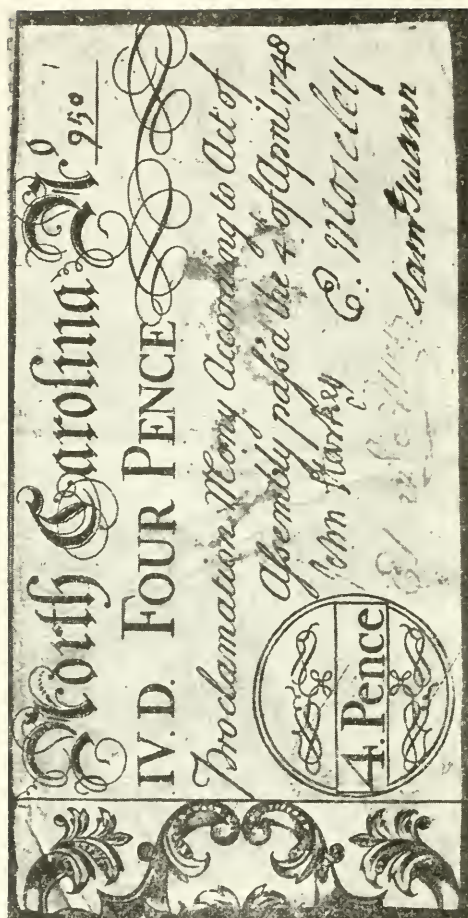 North Carolina No 950
IV. D. FOUR PENCE
Proclamation Mony According to Act of
Assembly pass'd the 4th of April 1748
John Starkey E. Moseley
Sam Swann
4. Pence